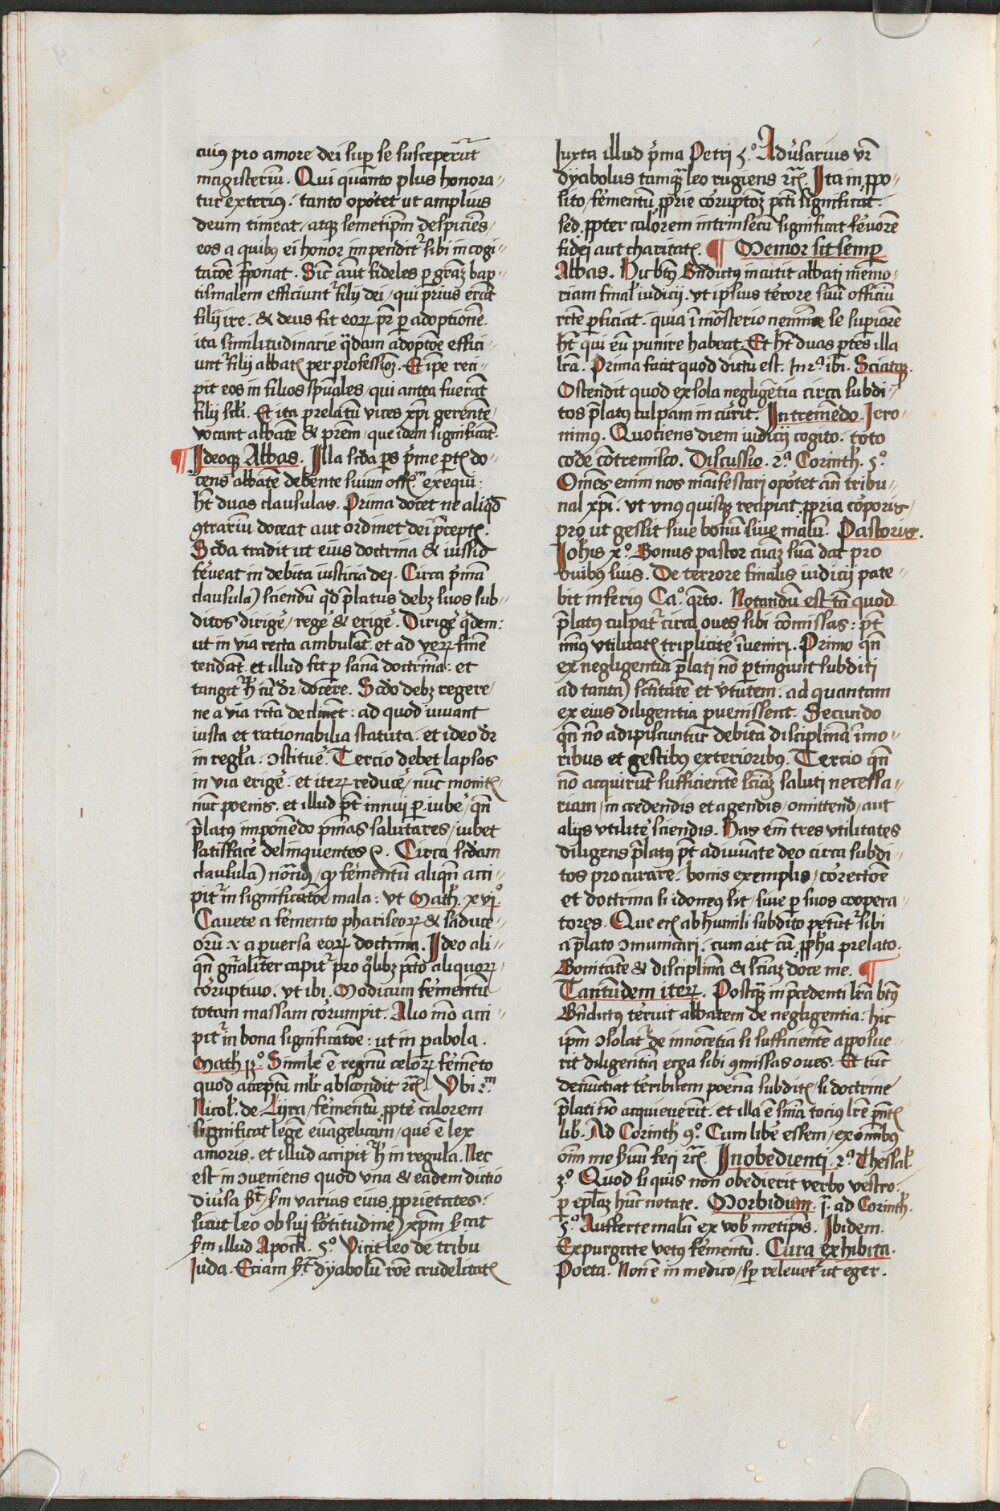 cuius pro amore dei sup̱ se suscepeŕūt
magisteriū. Qui quanto plus honora-
tur exteriꝰ. tanto opōtet ut amplius
deum timeat / atqꝫ semetip̄m despiciēs /
eos a quibus ei honor impendit᷑ sibi in cogi-
tatōe p̄ponat. Sic̄ aūt fideles ꝑ grāꝫ bap-
tismalem efficiunt᷑ filij dei / qui prius erāt
filij ire. & deus fit eoꝝ pr̄ ꝑ adoptionē.
ita similitudinarie q̄dam adoptōe effici-
unt᷑ filij abbatꝭ per professionē. Et ip̄e reci-
pit eos in filios spūales / qui antea fuerāt
filij sc̄li. Et ita prelatū vices xp̄i gerentē /
vocant abbatē & p̄rem / que idem significāt.
¶ Ideoqꝫ Abbas. Illa sc̄da ꝑs p̄me ꝑtꝭ do-
cens abbatē debente suum offm̄ exequi:
hꝫ duas clausulas. Prima docet ne aliqͥd
ꝯtrariū doceat aut ordinet dei p̄ceptꝭ.
Sc̄da tradit ut eius doctrina & iussio
ferueat in debita iusticia dei. Circa p̄mā
clausulā sciendū qd̄ p̄latus debꝫ suos sub-
ditos dirige᷑ / rege᷑ & erige᷑. Dirige᷑ q̄dem:
ut in via recta ambulāt. et ad verū finē
tendāt. et illud fit ꝑ sanā doctrinā: et
tangit᷑ h̄ cū dr̄ docere. Sc̄do debꝫ regere /
ne a via recta declinēt: ad quod iuuant
iusta et rationabilia statuta. et ideo dr̄
in regl̄a: ꝯstitue᷑. Tercio debet lapsos
in via erige᷑. et iteꝝ reduce᷑ / nūc monitꝭ /
nūc poenis. et illud p̄t innui ꝑ iube᷑ / qn̄
p̄latus imponēdo pn̄ias salutares / iubet
satisface᷑ delinquentes &c. Circa sc̄dam
clausulā notād / ꝙ fermentū aliqn̄ acci-
pit᷑ in significatōe mala: ut Math. xvjͦ.
Cauete a fermento phariseoꝝ & saduce-
orū .i. a peruersa eoꝝ doctrina. Ideo ali-
qn̄ gn̄aliter capit᷑ pro qͦlibꝫ pctō aliquoꝝ
corruptiuo. ut ibi. Modicum fermentū
totam massam corrumpit. Alio mō acci-
pit᷑ in bona significatōe: ut in parabola.
Math xiijͦ. Simile ē regnū celoꝝ fermēto
quod acceptū ml̄r abscondit rc̄. Vbi .
Nicol. de Lyra / fermentū ꝓpt᷑ calorem
significat legē euāgelicam / que ē lex
amoris. et illud accipit᷑ h̄ in regula. Nec
est inconueniens quod vna & eadem dictio
diuersa sc̄at sm̄ varias eius ꝓprietates:
sicut leo ob sui fortitudinē xp̄m sc̄at
sm̄ illud Apock. 5ͦ. Vicit leo de tribu
Iuda. Eciam sc̄at dyabolū rōe crudelitatꝭ
Iuxta illud p̄ma Petri 5ͦ. Aduersarius vr̄
dyabolus tamqꝫ leo rugiens rc̄. Ita in ꝓpo-
sito / fermentū ꝓprie corruptoꝫ pctī significat.
sed ꝓpter calorem intrinsecū significat feruorē
fidej aut charitatꝭ. ¶ Memor sit semꝑ
Abbas. Hic btū̄s Bn̄dictus incitit abbatj memo-
riam finalꝭ iudicij. vt ipsius terrore suū officiū
recte ꝑficiat. quia ī mōsterio neminē se supiorē
hꝫ. qui eū punire habeat. Et hꝫ duas ꝑtes illa
lr̄a. Prima facit quod dictū est. In 2ͣ ibi. Sciatqꝫ.
Ostendit quod ex sola negligētia circa subdi-
tos p̄latꝰ culpam incurrit. In tremēdo. Iero-
nimꝰ. Quotiens diem iudicij cogito. toto
corde cōtremisco. Discussio. 2ͣ Corinth. 5ͦ.
Om̄es enim nos manifestari opōtet an̄ tribu-
nal xp̄i. vt vnus quisqꝫ recipiat ꝓpria corporis /
pro ut gessit siue bonū siue malū. Pastoris.
Iohis xͦ. Bonus pastor aīaꝫ suā dat pro
ouibꝰ suis. De terrore finalis iudicij pate-
bit inferius Ca.ͦ qͣrto. Notandū est tn̄ quod
p̄latꝰ culpat᷑ circa oues sibi cōmissas: p̄t
minꝰ vtilitatꝭ triplicit᷑ īuenirj. Primo qn̄
ex negligentia p̄lati nō ꝑtingunt subditi
ad tantā sc̄titatē et v̄tutem. ad quantam
ex eius diligentia ꝑuenissent. Secundo
qn̄ nō adipiscuntur debitā disciplinā ī mo-
ribus et gestibus exterioribꝰ. Tercio qn̄
nō acquirūt sufficientē sciāꝫ saluti necessa-
riam / in credendis et agendis / omittendꝭ aut
alijs vtilit᷑ sciendis. Has em̄ tres vtilitates
diligens p̄latꝰ p̄t adiuuāte deo circa subdi-
tos procurare. bonis exemplis / correctōe
et doctrina si idoneꝰ sit / siue ꝑ suos coopera-
tores. Que ecī ab humili subdito petunt᷑ sibi
a p̄lato ꝯmunicari. cum ait cū ꝓpha prelato.
Bonitatē & disciplinā & sciāꝫ doce me. ¶
Tantūdem iteꝝ. Postqꝫ in p̄cedenti lr̄a btꝰ̄
Bn̄dictus terruit abbatem de negligentia: hic
ip̄m ꝯsolat᷑ de innocētia si sufficientē apposue-
rit diligentiā erga sibi ꝯmissas oues. Et tūc
denūctiat terribilem poenā subditꝭ si doctrine
p̄lati nō acquieuerīt. et illa ē sn̄ia tocius lr̄e pn̄tꝭ
lib. Ad Corinth 9ͦ. Cum liber essem / ex omībꝰ
oīm me seruū feci rc̄. Inobedienti. 2ͣ Thessal.
3ͦ. Quod si quis non obedierit verbo vestro.
ꝑ ep̄laꝫ hūc notate. Morbidum. jͣ ad Corinth.
5ͦ. Aufferte malū ex vob metipīs. Ibidem.
Expurgate vetꝰ fermentū. Cura exhibita.
Poeta. Non ē in medico / sꝑ releuet᷑ ut eger.